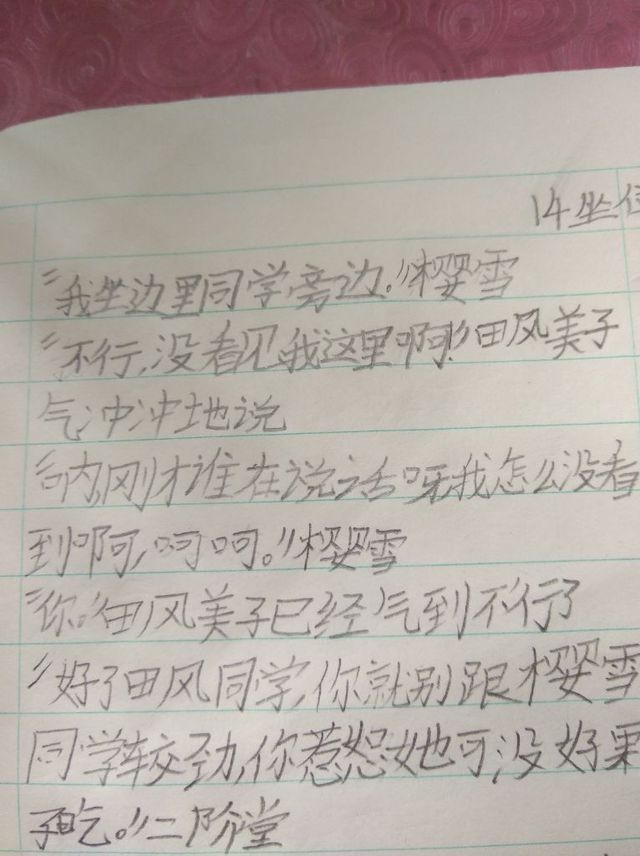 14坐位
"我坐边里同学旁边。"樱雪
"不行,没看见我这里啊!"田风美子
气冲冲地说
"呐,刚才谁在说话呀我怎么没看
到啊,呵呵。"樱雪
"你。"田风美子已经气到不行了
"好了田风同学,你就别跟樱雪
同学较劲,你惹怒她可没好果
子吃。"二阶堂